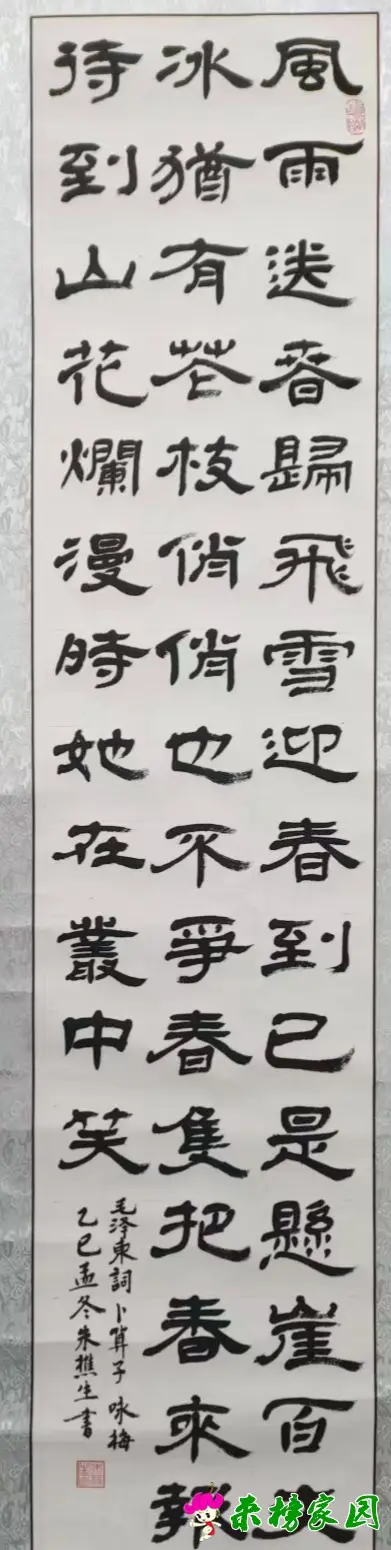 風雨送春歸飛雪迎春到已是懸崖百丈
冰猶有花枝俏俏也不爭春隻把春來報
待到山花爛漫時她在叢中笑
毛澤東詞卜算子咏梅
乙巳孟冬朱樵生書
东榜家园